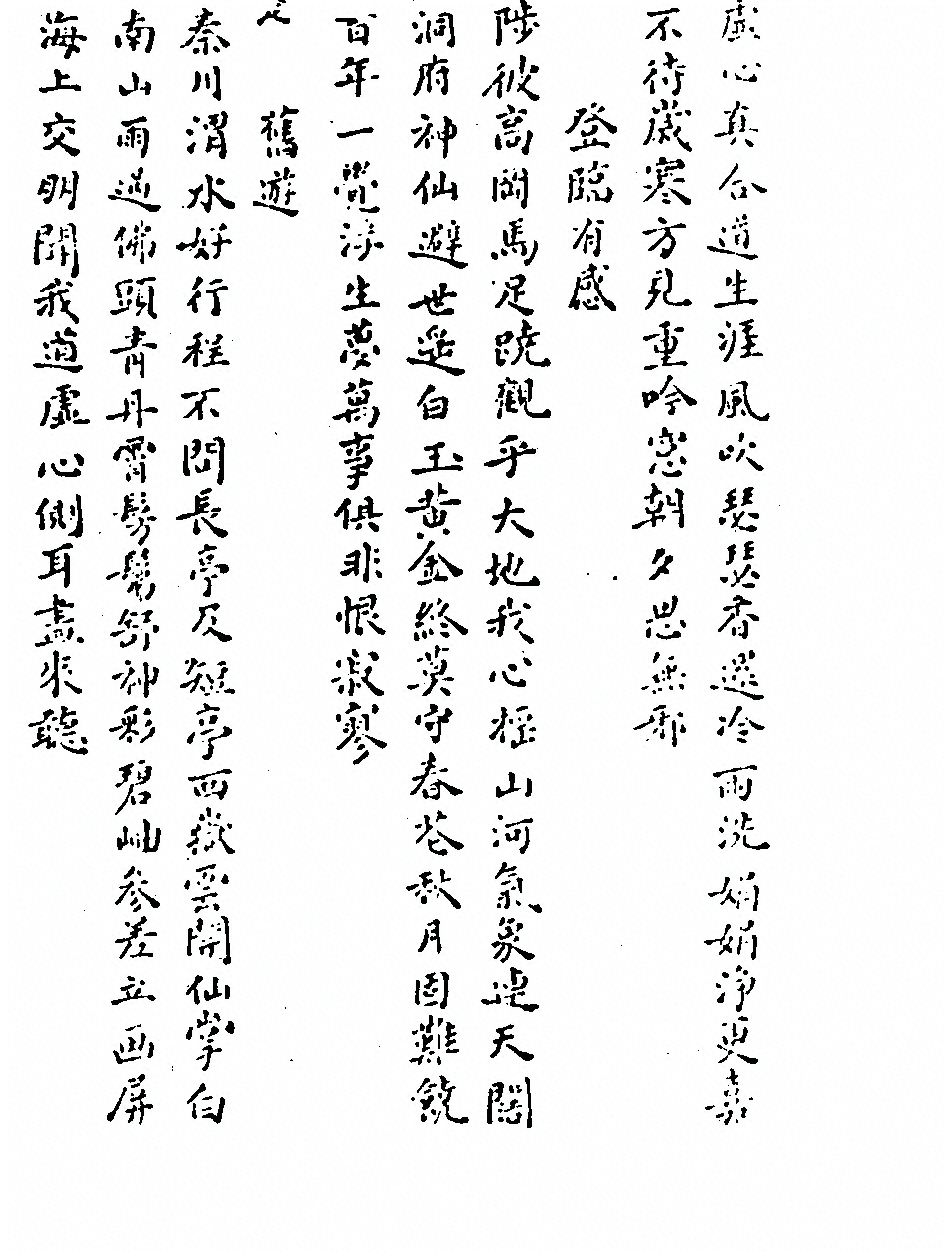 虛心真合道生涯風吹瑟瑟香還冷雨洗娟娟淨更嘉
不待歲寒方見重吟窓朝夕思無邪
登臨有感
陟彼高岡馬足蹺觀乎大地我心搖山河氣象連天闊
洞府神仙避世遙白玉黃金終莫守春花秋月固難饒
百年一覺浮生夢萬事俱非恨寂寥
舊遊
秦川渭水好行程不問長亭及短亭西嶽雲開仙掌白
南山雨過佛頭青丹霄髣髴舒神彩碧岫參差立画屏
海上交朋聞我道虛心側耳盡來聽